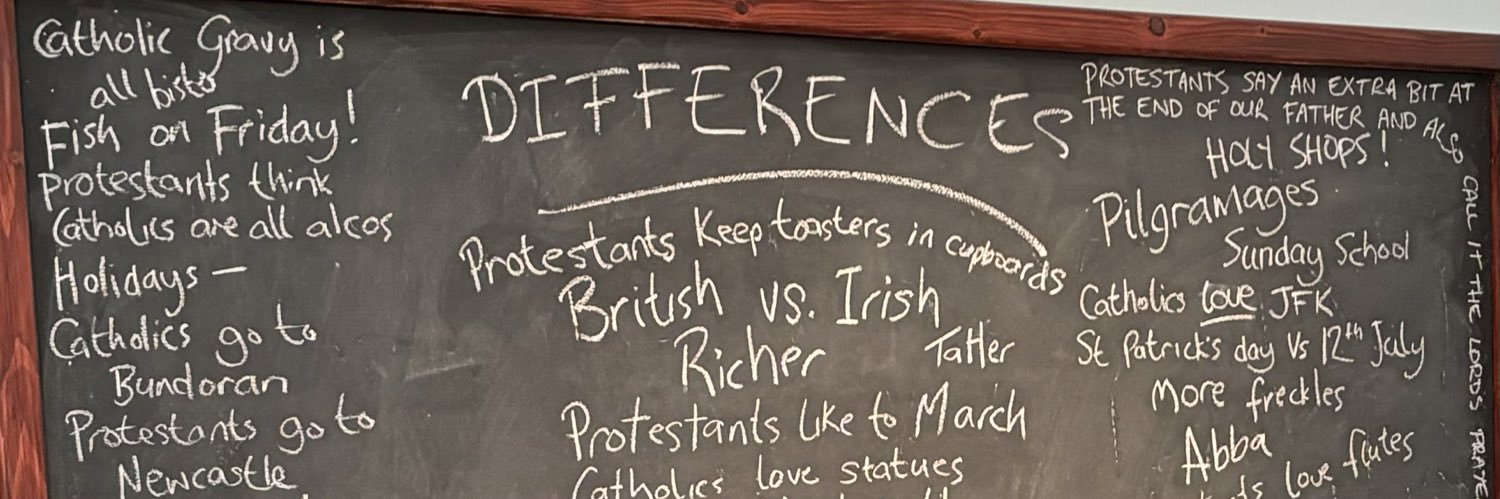 DIFFERENCES
Catholic Gravy is
all bisto
Fish on Friday!
Protestants think
Catholics are all alcos
Holidays —
Catholics go to
Bundoran
Protestants go to
Newcastle
Protestants Keep toasters in cupboards
British vs. Irish
Richer Taller
Protestants like to March
Catholics love statues
PROTESTANTS SAY AN EXTRA BIT AT
THE END OF OUR FATHER AND ALSO
CALL IT THE LORDS
HOLY SHOPS!
Pilgramages
Sunday School
Catholics love JFK
St Patrick's day Vs 12th July
More freckles
Abba
love flutes